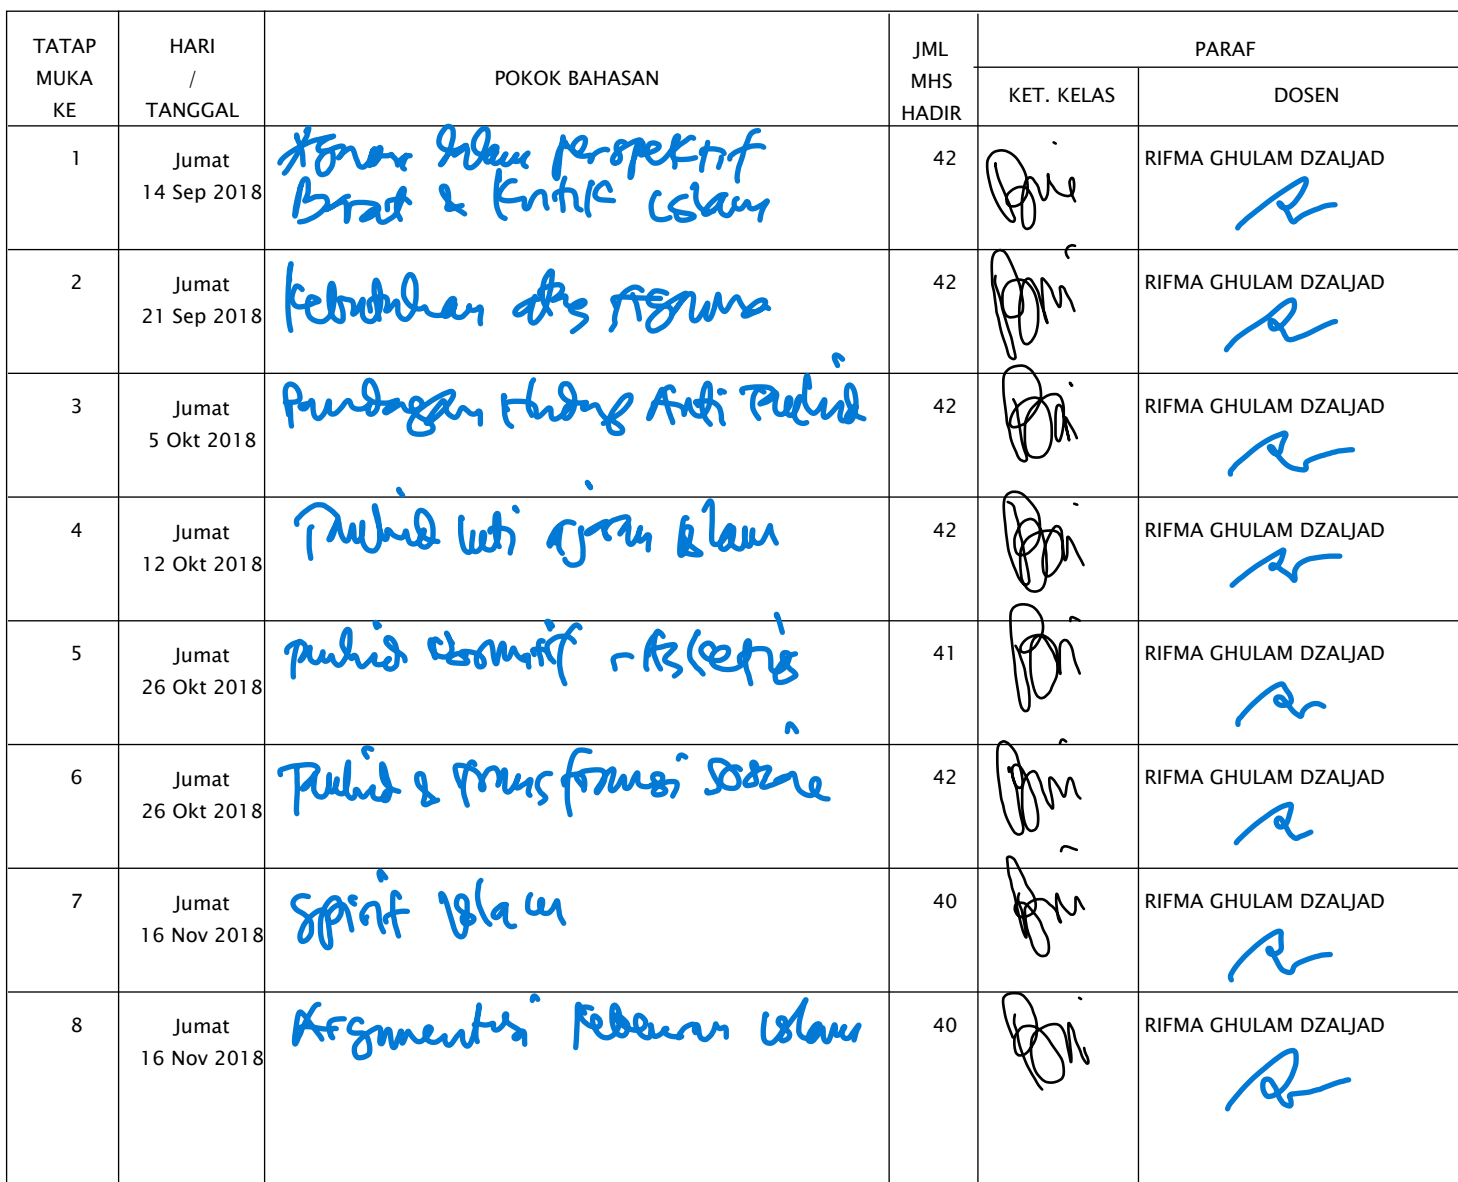 TATAP MUKA KE HARI / TANGGAL POKOK BAHASAN JML MHS HADIR PARAF
KET. KELAS DOSEN
1 Jumat 14 Sep 2018 Agama Islam perspektif 42 RIFMA GHULAM DZALJAD
Barat & Kritik Islam
2 Jumat 21 Sep 2018 Kebutuhan atas Agama 42 RIFMA GHULAM DZALJAD
3 Jumat 5 Okt 2018 Pandangan Hidup Anti Tauhid 42 RIFMA GHULAM DZALJAD
4 Jumat 12 Okt 2018 Tauhid inti ajaran Islam 42 RIFMA GHULAM DZALJAD
5 Jumat 26 Okt 2018 Tauhid 41 RIFMA GHULAM DZALJAD
6 Jumat 26 Okt 2018 Tauhid & transformasi sosial 42 RIFMA GHULAM DZALJAD
7 Jumat 16 Nov 2018 Spirit Islam 40 RIFMA GHULAM DZALJAD
8 Jumat 16 Nov 2018 Argumentasi kebenaran Islam 40 RIFMA GHULAM DZALJAD